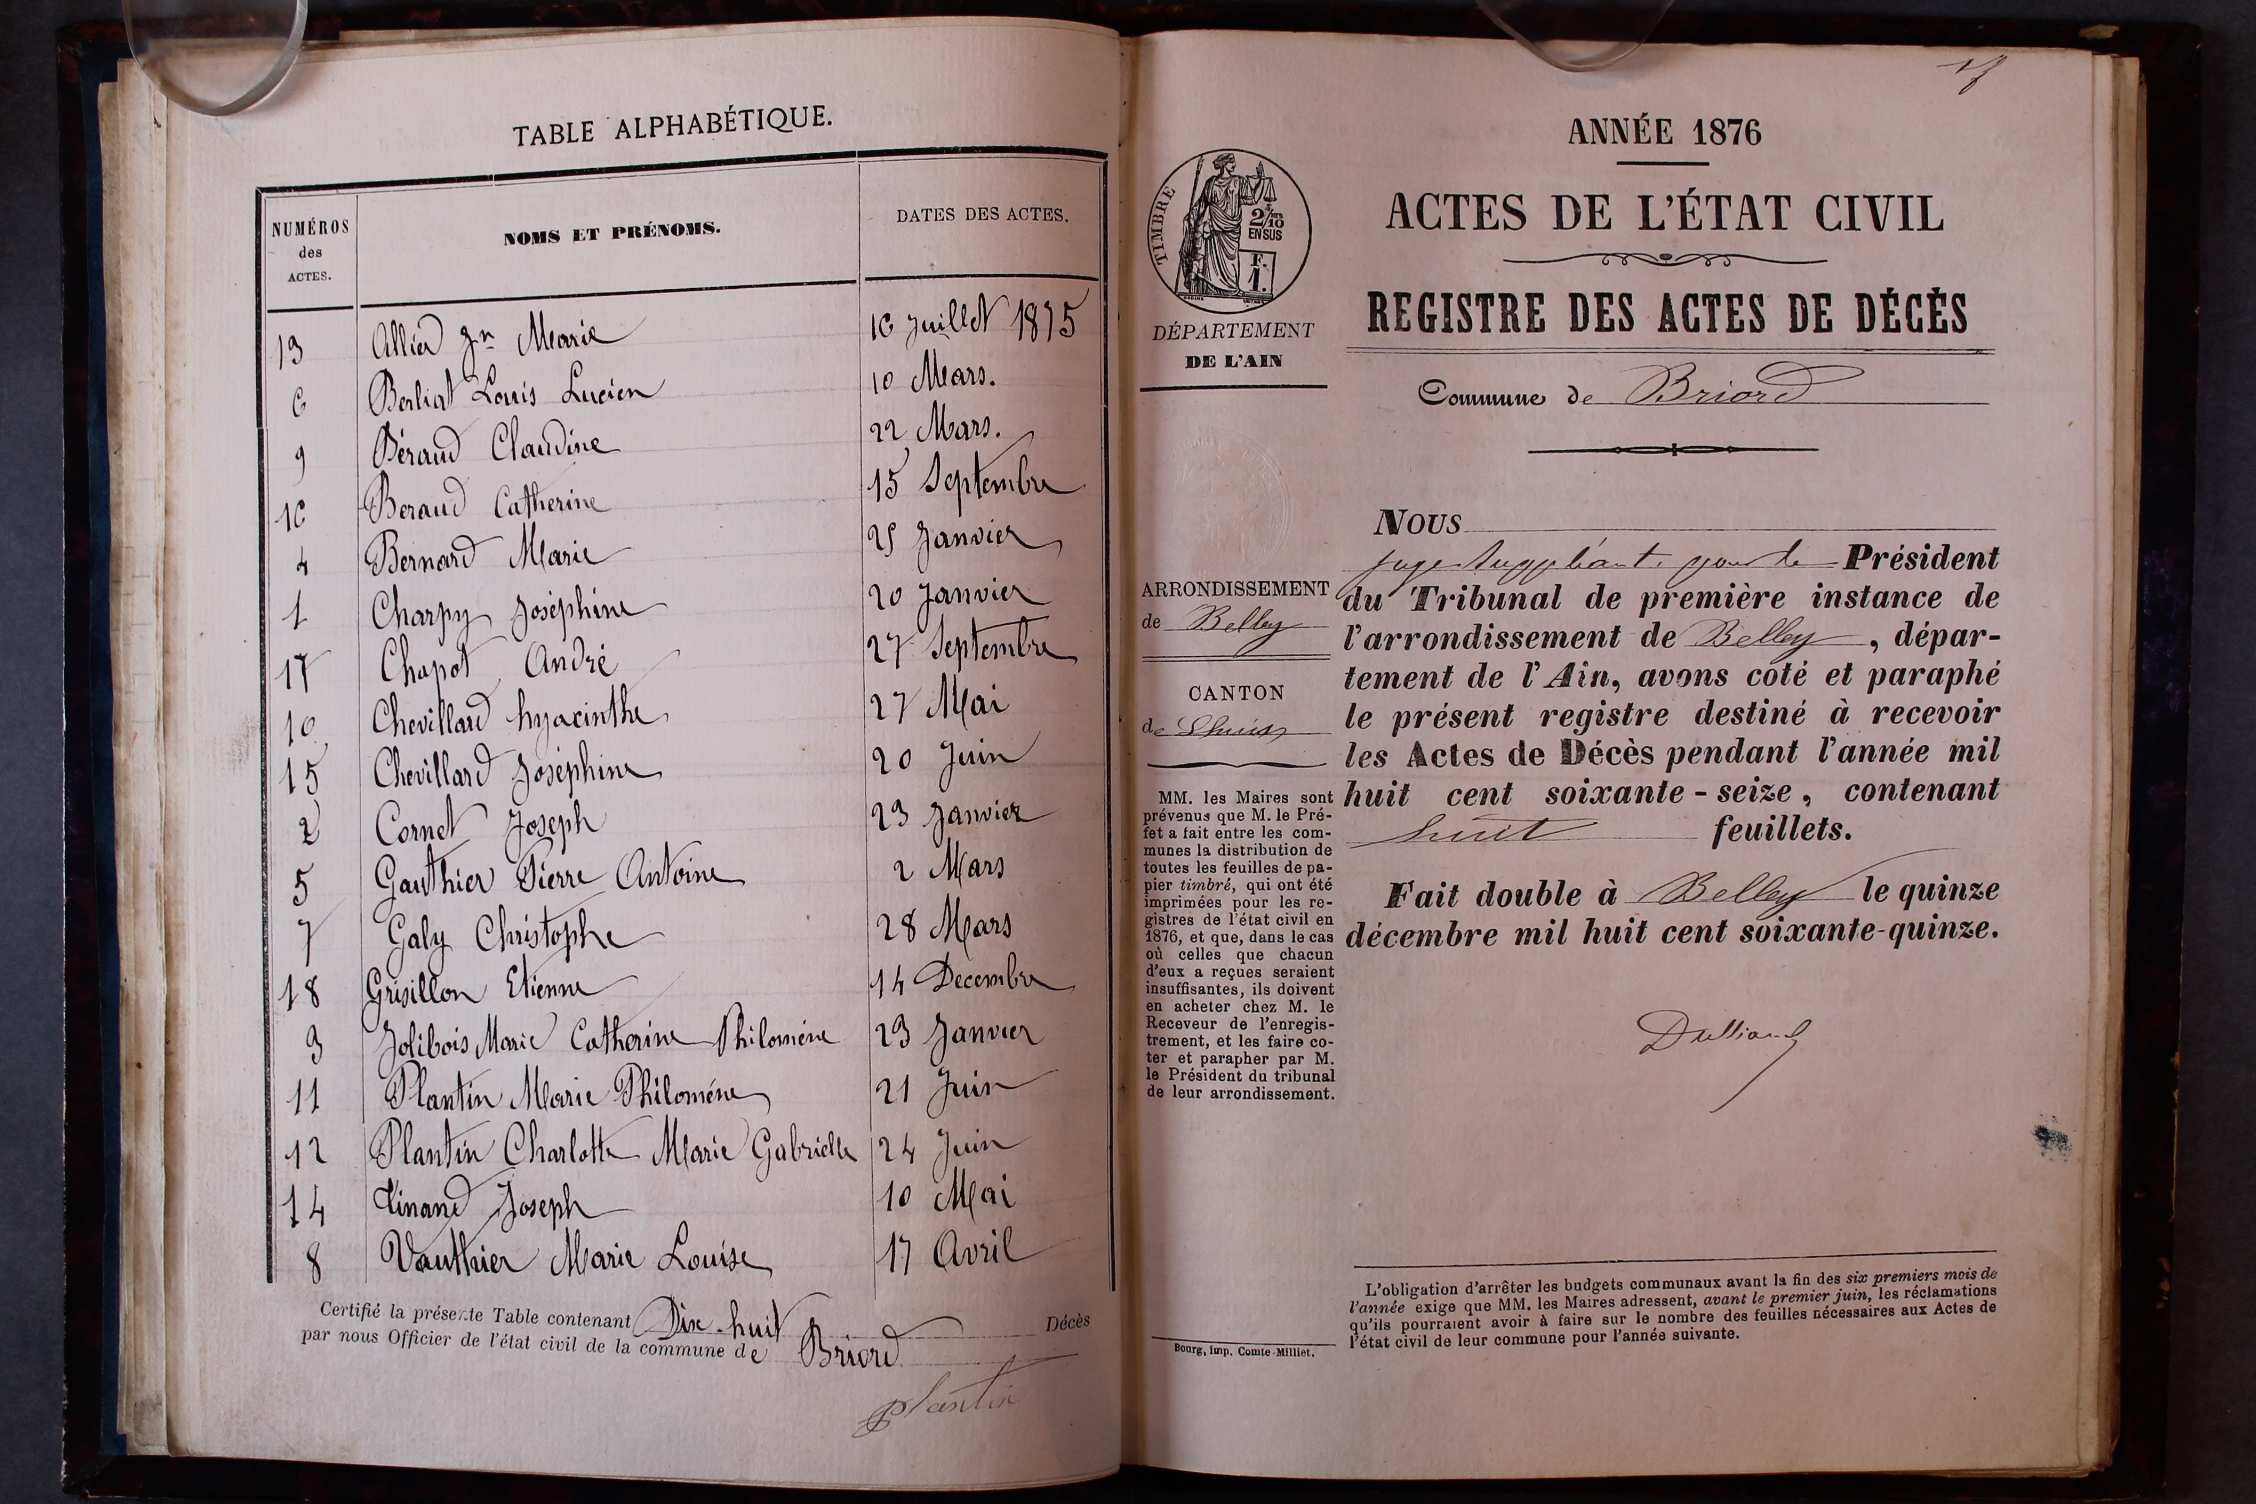 TABLE ALPHABÉTIQUE.
NUMÉROS des ACTES. NOMS ET PRÉNOMS. DATES DES ACTES.
13 Allied Jn Marie 16 Juillet 1875
6 Berliat Louis Lucien 10 Mars.
9 Béraud Claudine 22 Mars.
16 Beraud Catherine 15 Septembre
4 Bernard Marie 25 Janvier
1 Charpy Joséphine 20 Janvier
17 Chapot André 27 Septembre
10 Chevillard hyacinthe 27 Mai
15 Chevillard Joséphine 20 Juin
2 Cornet Joseph 23 Janvier
5 Gauthier Pierre Antoine 2 Mars
7 Galy Christophe 28 Mars
18 Grisillon Etienne 14 Decembre
3 Jolibois Marie Catherine Philoméne 23 Janvier
11 Plantin Marie Philoméne 21 Juin
12 Plantin Charlotte Marie Gabrielle 24 Juin
14 Tinand Joseph 10 Mai
8 Vauthier Marie Louise 17 Avril
Certifié la présente Table contenant Dix-huit Décès
par nous Officier de l'état civil de la commune de Briord
Plantin
ANNÉE 1876
ACTES DE L'ÉTAT CIVIL
REGISTRE DES ACTES DE DÉCÈS
Commune de Briord
TIMBRE
2/10
EN SUS
F.
1.
DÉPARTEMENT
DE L'AIN
ARRONDISSEMENT
de Belley
CANTON
de Lhuis
MM. les Maires sont
prévenus que M. le Pré-
fet a fait entre les com-
munes la distribution de
toutes les feuilles de pa-
pier timbré, qui ont été
imprimées pour les re-
gistres de l'état civil en
1876, et que, dans le cas
où celles que chacun
d'eux a reçues seraient
insuffisantes, ils doivent
en acheter chez M. le
Receveur de l'enregis-
trement, et les faire co-
ter et parapher par M.
le Président du tribunal
de leur arrondissement.
Bourg, imp. Comte-Milliet.
NOUS
juge suppléant pour le Président
du Tribunal de première instance de
l'arrondissement de Belley, dépar-
tement de l'Ain, avons coté et paraphé
le présent registre destiné à recevoir
les Actes de Décès pendant l'année mil
huit cent soixante-seize, contenant
huit feuillets.
Fait double à Belley le quinze
décembre mil huit cent soixante-quinze.
L'obligation d'arrêter les budgets communaux avant la fin des six premiers mois de
l'année exige que MM. les Maires adressent, avant le premier juin, les réclamations
qu'ils pourraient avoir à faire sur le nombre des feuilles nécessaires aux Actes de
l'état civil de leur commune pour l'année suivante.